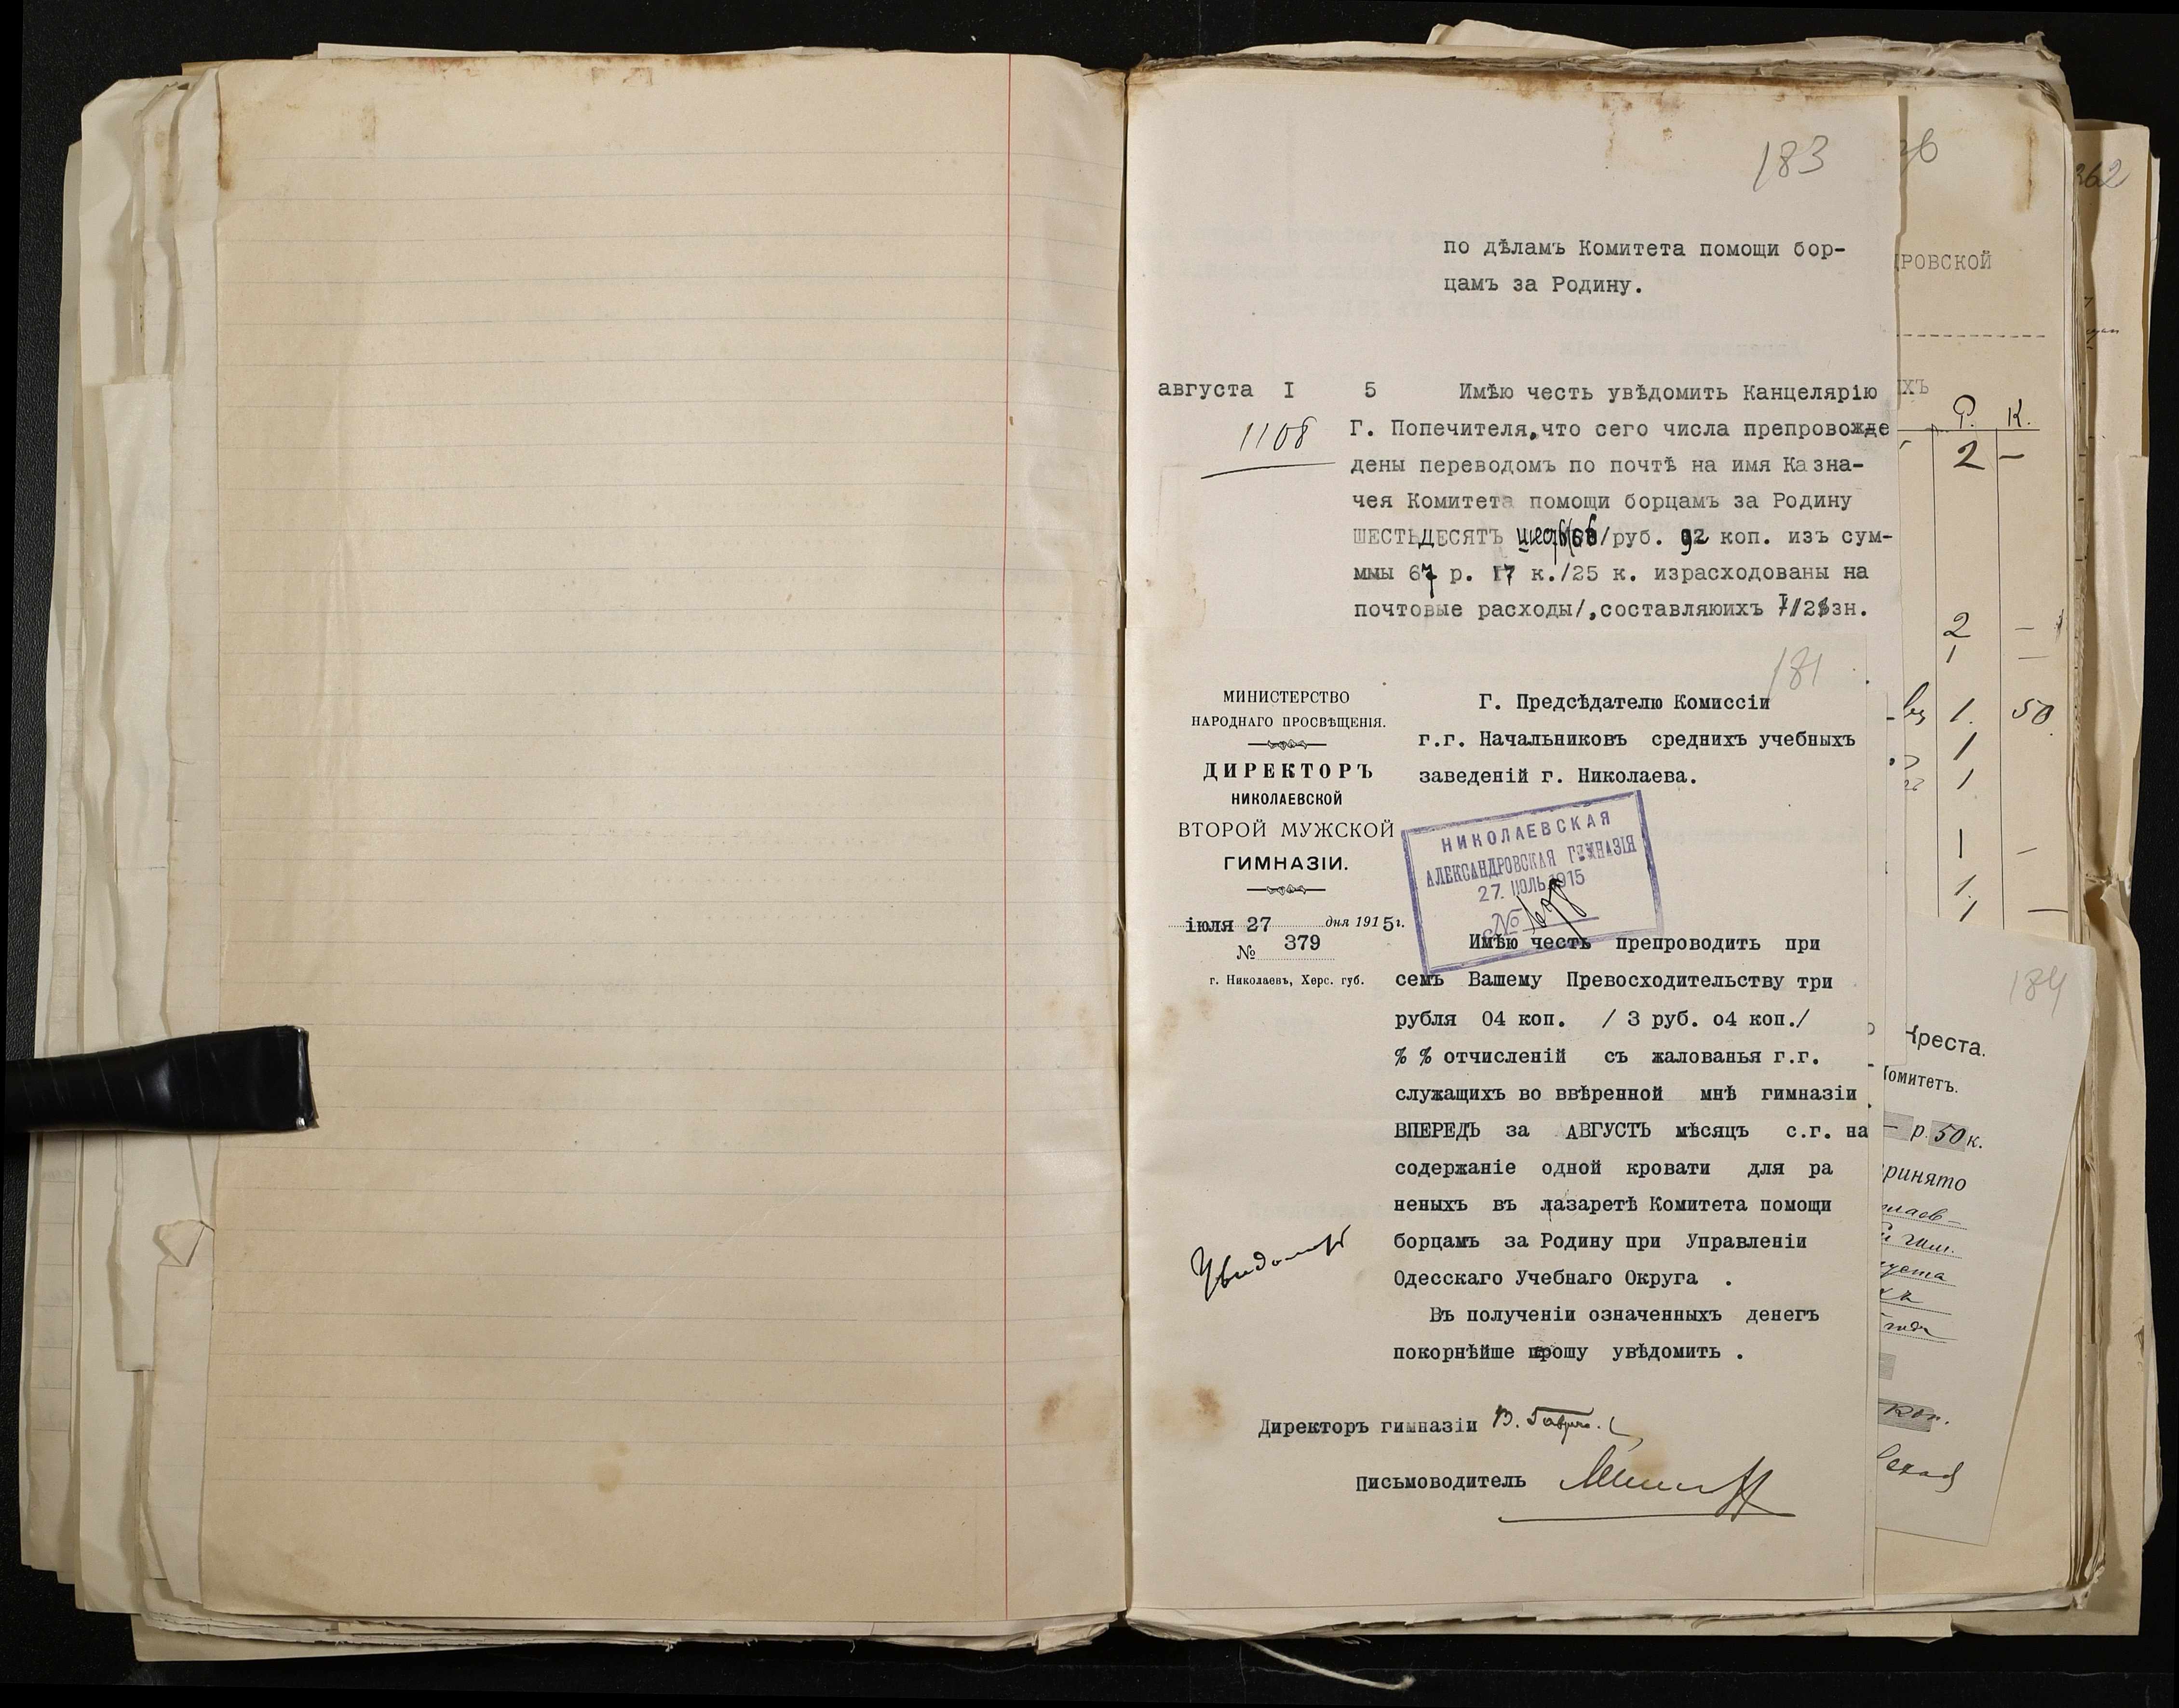 183
по дѣламъ Комитета помощи бор-
цамъ за Родину.
августа I 5
1108
Имѣю честь увѣдомить Канцелярію
Г. Попечителя,что сего числа препровожде
дены переводомъ по почтѣ на имя Казна-
чея Комитета помощи борцамъ за Родину
ШЕСТЬДЕСЯТЪ /руб. 92 коп. изъ сум-
ммы 67 р. 17 к./25 к. израсходованы на
почтовые расходы/,составляюихъ
181
МИНИСТЕРСТВО
НАРОДНАГО ПРОСВѢЩЕНІЯ.
ДИРЕКТОРЪ
НИКОЛАЕВСКОЙ
ВТОРОЙ МУЖСКОЙ
ГИМНАЗІИ.
іюля 27 дня 1915г.
№ 379
г. Николаевъ, Херс. губ.
Г. Предсѣдателю Комиссіи
г.г. Начальниковъ среднихъ учебныхъ
заведеній г. Николаева.
НИКОЛАЕВСКАЯ
АЛЕКСАНДРОВСКАЯ ГИМНАЗІЯ
27. ІЮЛЬ 1915
№
Имѣю честь препроводить при
семъ Вашему Превосходительству три
рубля 04 коп. / 3 руб. о4 коп./
% % отчисленій съ жалованья г.г.
служащихъ во ввѣренной мнѣ гимназіи
ВПЕРЕДЪ за АВГУСТЪ мѣсяцъ с.г. на
содержаніе одной кровати для ра
неныхъ въ лазаретѣ Комитета помощи
борцамъ за Родину при Управленіи
Одесскаго Учебнаго Округа .
Въ полученіи означенныхъ денегъ
покорнѣйше прошу увѣдомить .
Директоръ гимназіи
Письмоводитель
362
РОВСКОЙ
ХЪ
Р. К.
2 —
2 —
1 —
1. 50
1
1
1 —
1.
1 —
184
Креста.
Комитетъ.
— р. 50 к.
принято